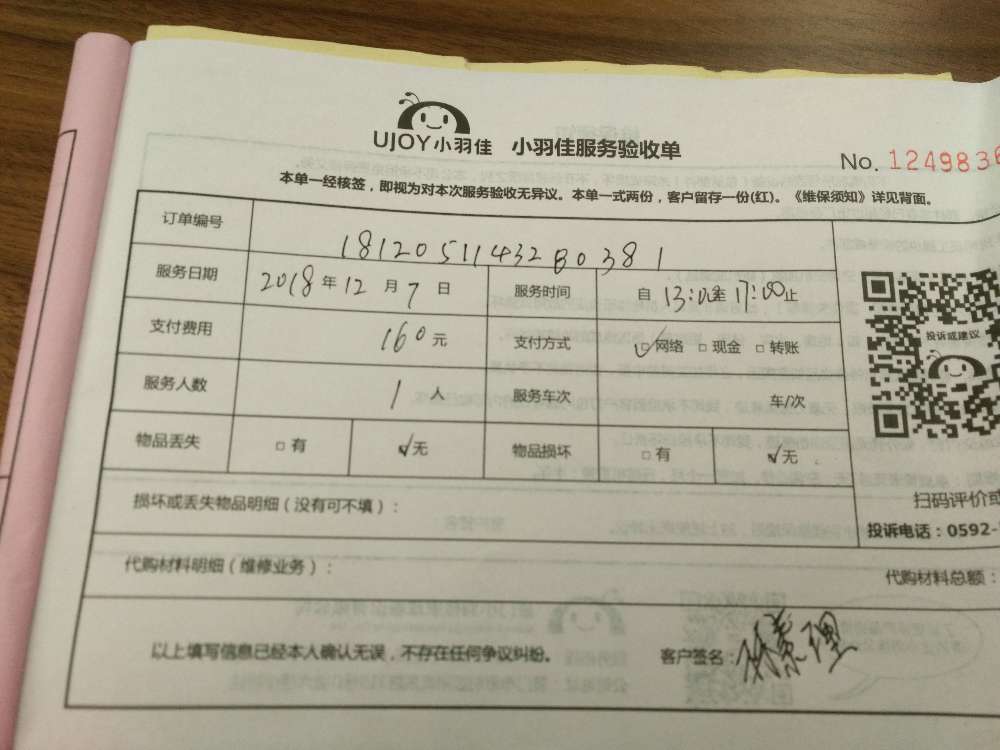 UJOY小羽佳 小羽佳服务验收单
No. 1249836
本单一经核签，即视为对本次服务验收无异议。本单一式两份，客户留存一份(红)。《维保须知》详见背面。
订单编号 181205114328 0381
服务日期 2018年12月7日 服务时间 自13:00至17:00止
支付费用 160元 支付方式 ☑网络 □现金 □转账
投诉或建议
服务人数 1人 服务车次 车/次
物品丢失 □有 ☑无 物品损坏 □有 ☑无
扫码评价或
损坏或丢失物品明细（没有可不填）：
投诉电话：0592-
代购材料明细（维修业务）：
代购材料总额：
以上填写信息已经本人确认无误，不存在任何争议纠纷。 客户签名：